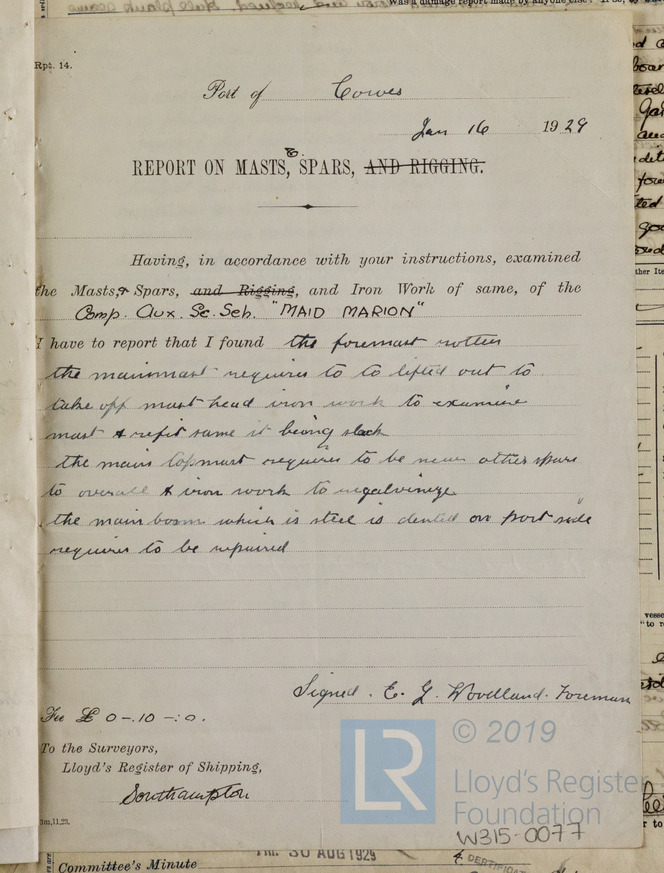 Was a damage report made by anyone else? If so, to
Rpt. 14.
Port of Cowes
Jan 16 1929
REPORT ON MASTS, & SPARS, AND RIGGING.
Having, in accordance with your instructions, examined
the Masts, & Spars, and Rigging, and Iron Work of same, of the
Comp. Aux. Sc. Sch. "MAID MARION"
I have to report that I found the foremast rotten
the mainmast requires to to lifted out to
take off mast head iron work to examine
mast & refit same it being slack
the main topmast requires to be new other spars
to overall & iron work to regalvinize
the main boom which is steel is dented on port side
requires to be repaired
Signed. E. G. Woodland. Foreman
Fee £ 0-.10-:0.
To the Surveyors,
Lloyd's Register of Shipping,
Southampton
3m,11,23.
© 2019
LR
Lloyd's Register
Foundation
W315-0077
30 AUG 1929
Committee's Minute